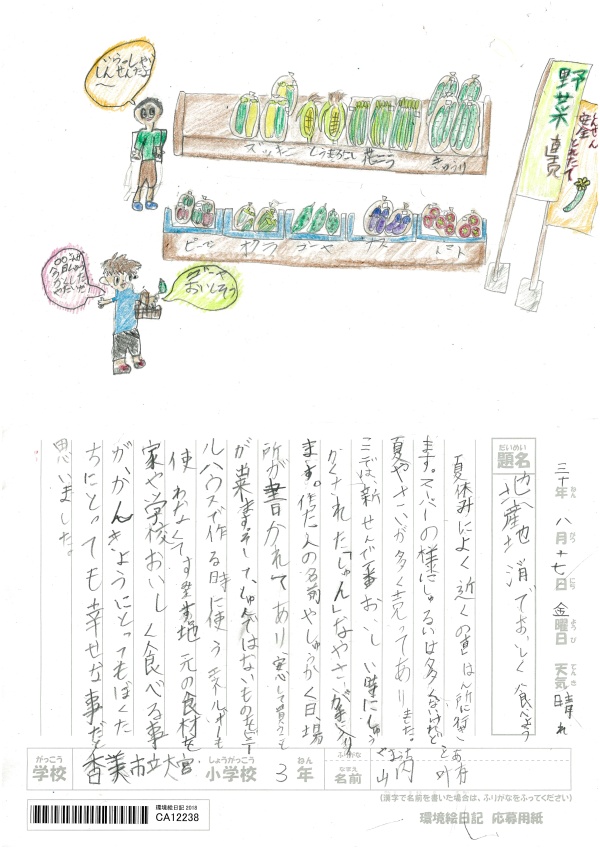 いらっしゃい
しんせんだよ
～
ズッキー
とうもろこし
きゅうり
野菜直売
とれたて
ピーマン
オクラ
ゴーヤ
ナス
トマト
今日しゅう
かくした
やさいだ
ゴーヤ
おいしそう
三十年 八月十七日 金曜日 天気 晴れ
ねん がつ にち ようび てんき
だいめい
題名
地産地消でおいしく食べよう
夏休みによく近くの直は所に行き
ます。スーパーの様にしゅるいは多くないけれど
夏やさいが多く売ってありました。
ここでは、新せんで一番おいしい時にしゅう
かくされた「しゅん」なやさいが手に入り
ます。作った人の名前やしゅうかく日、場
所が書かれてあり、安心して買うことも
が出来ます。そして、しゅんではないものをビニー
ルハウスで作る時に使うエネルギーも
使わなくてすむ。地元の食材を
家や学校でおいしく食べる事
がかんきょうにとってもぼくた
ちにとっても幸せな事だと
思いました。
がっこう
学校
香美市立大宮
しょうがっこう
小学校
3
ねん
年
ふりがな
なまえ
名前
山内
(漢字で名前を書いた場合は、ふりがなをふってください)
環境絵日記 2018
CA12238
環境絵日記 応募用紙